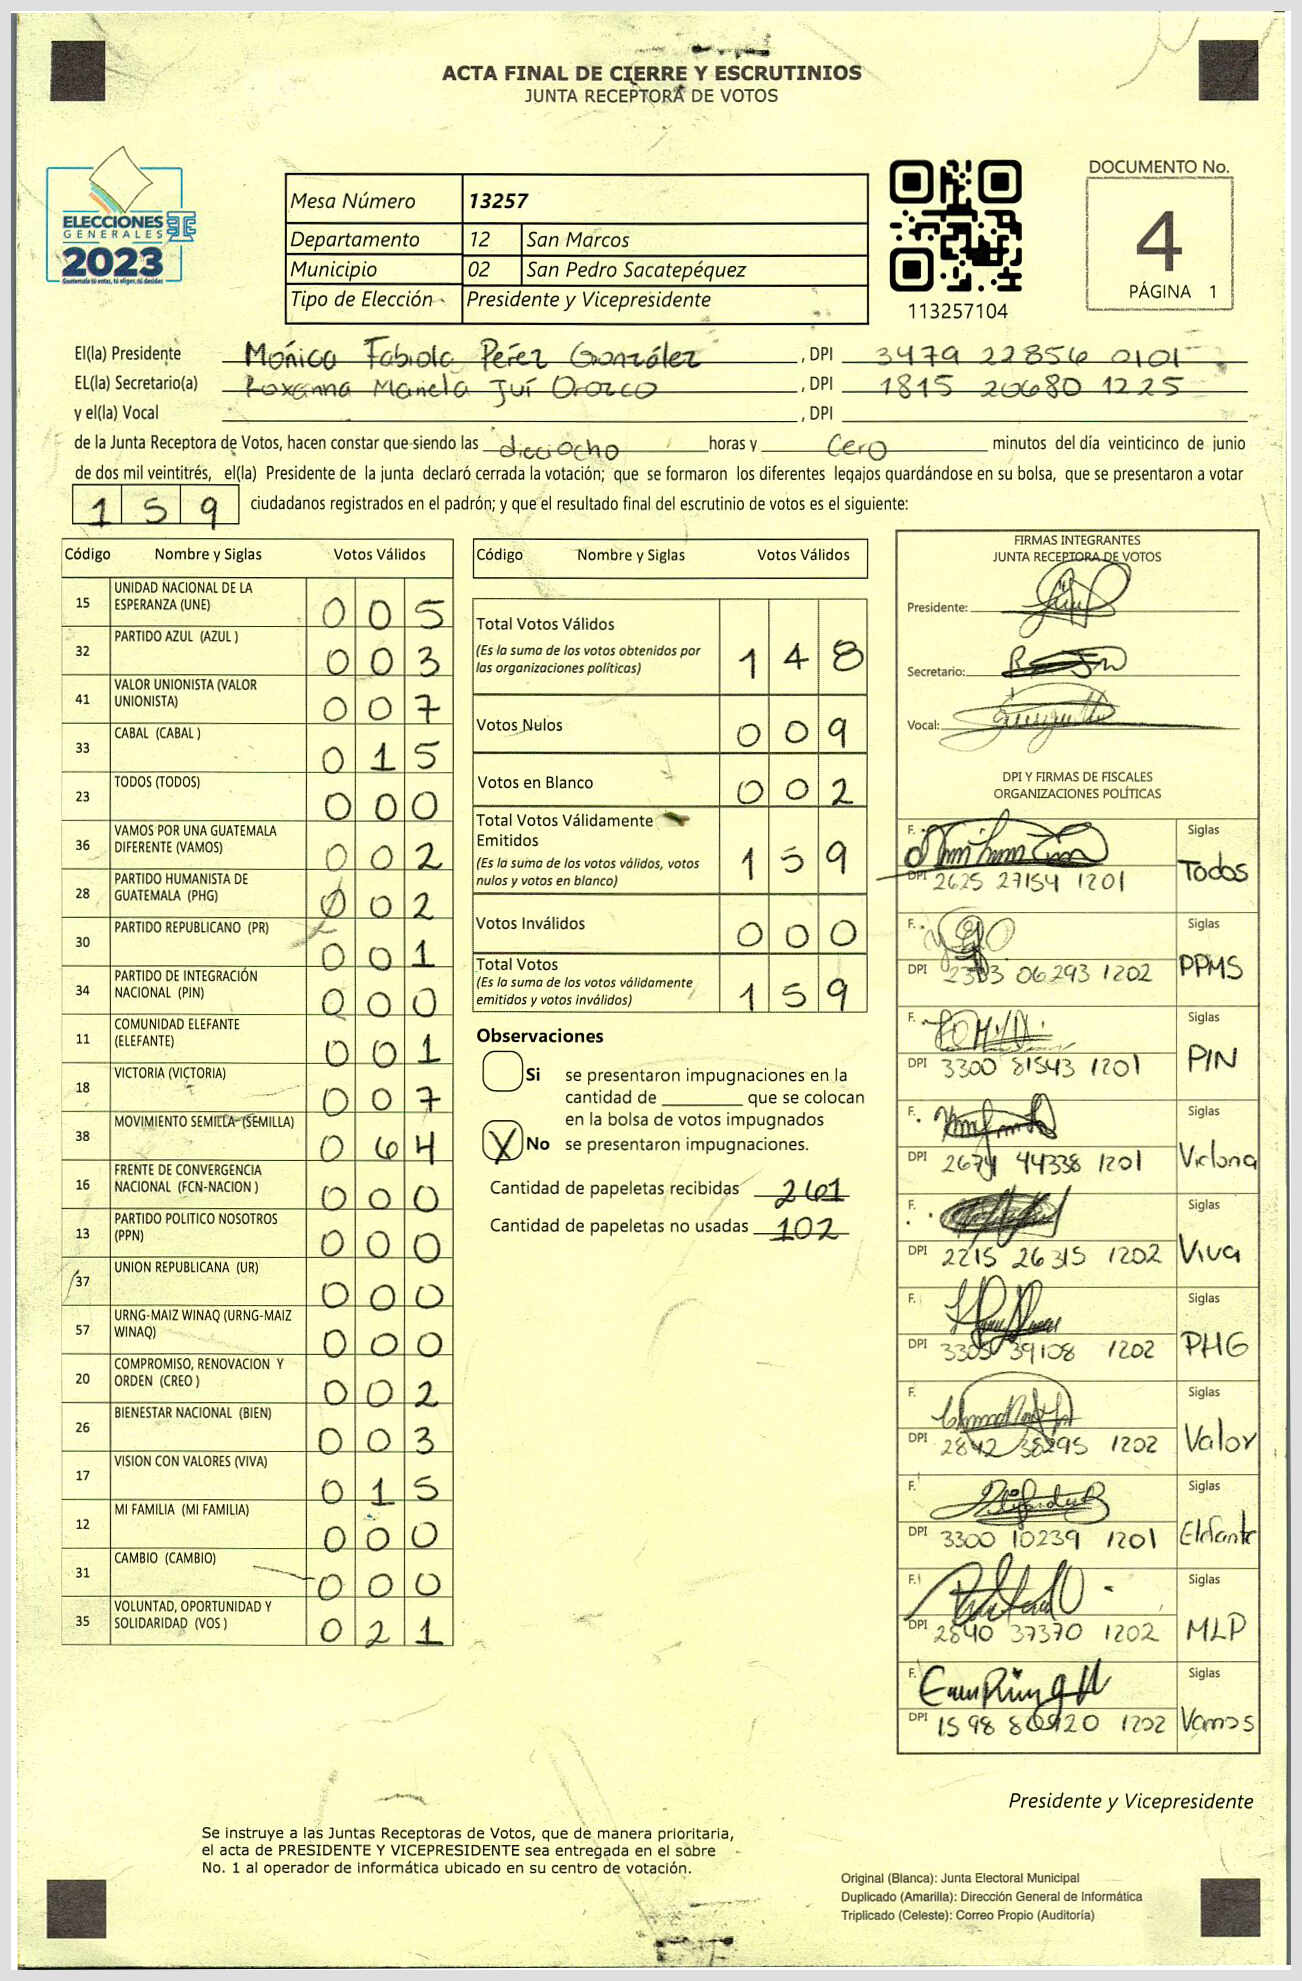 ACTA FINAL DE CIERRE Y ESCRUTINIOS
JUNTA RECEPTORA DE VOTOS
ELECCIONES
GENERALES
2023
Guatemala tú votas, tú eliges, tú decides
Mesa Número 13257
Departamento 12 San Marcos
Municipio 02 San Pedro Sacatepéquez
Tipo de Elección Presidente y Vicepresidente
113257104
DOCUMENTO No.
4
PÁGINA 1
El(la) Presidente Mónica Fabiola Pérez González , DPI 3479 22856 0101
EL(la) Secretario(a) Roxanna Mariela Juí Orozco , DPI 1815 20680 1225
y el(la) Vocal , DPI
de la Junta Receptora de Votos, hacen constar que siendo las dieciocho horas y cero minutos del día veinticinco de junio
de dos mil veintitrés, el(la) Presidente de la junta declaró cerrada la votación; que se formaron los diferentes legajos guardándose en su bolsa, que se presentaron a votar
159 ciudadanos registrados en el padrón; y que el resultado final del escrutinio de votos es el siguiente:
Código Nombre y Siglas Votos Válidos
15 UNIDAD NACIONAL DE LA ESPERANZA (UNE) 005
32 PARTIDO AZUL (AZUL ) 003
41 VALOR UNIONISTA (VALOR UNIONISTA) 007
33 CABAL (CABAL ) 015
23 TODOS (TODOS) 000
36 VAMOS POR UNA GUATEMALA DIFERENTE (VAMOS) 002
28 PARTIDO HUMANISTA DE GUATEMALA (PHG) 002
30 PARTIDO REPUBLICANO (PR) 001
34 PARTIDO DE INTEGRACIÓN NACIONAL (PIN) 000
11 COMUNIDAD ELEFANTE (ELEFANTE) 001
18 VICTORIA (VICTORIA) 007
38 MOVIMIENTO SEMILLA (SEMILLA) 064
16 FRENTE DE CONVERGENCIA NACIONAL (FCN-NACION ) 000
13 PARTIDO POLITICO NOSOTROS (PPN) 000
37 UNION REPUBLICANA (UR) 000
57 URNG-MAIZ WINAQ (URNG-MAIZ WINAQ) 000
20 COMPROMISO, RENOVACION Y ORDEN (CREO ) 002
26 BIENESTAR NACIONAL (BIEN) 003
17 VISION CON VALORES (VIVA) 015
12 MI FAMILIA (MI FAMILIA) 000
31 CAMBIO (CAMBIO) 000
35 VOLUNTAD, OPORTUNIDAD Y SOLIDARIDAD (VOS ) 021
Código Nombre y Siglas Votos Válidos
Total Votos Válidos 148
(Es la suma de los votos obtenidos por
las organizaciones políticas)
Votos Nulos 009
Votos en Blanco 002
Total Votos Válidamente
Emitidos 159
(Es la suma de los votos válidos, votos
nulos y votos en blanco)
Votos Inválidos 000
Total Votos 159
(Es la suma de los votos válidamente
emitidos y votos inválidos)
Observaciones
Si se presentaron impugnaciones en la
cantidad de ________ que se colocan
en la bolsa de votos impugnados
X No se presentaron impugnaciones.
Cantidad de papeletas recibidas 261
Cantidad de papeletas no usadas 102
FIRMAS INTEGRANTES
JUNTA RECEPTORA DE VOTOS
Presidente:
Secretario:
Vocal:
DPI Y FIRMAS DE FISCALES
ORGANIZACIONES POLÍTICAS
F. Siglas
DPI 2625 27154 1201 Todos
F. Siglas
DPI 06293 1202 PPMS
F. Siglas
DPI 3300 81543 1201 PIN
F. Siglas
DPI 2674 44338 1201 Victoria
F. Siglas
DPI 2215 26315 1202 Viva
F. Siglas
DPI 3305 39108 1202 PHG
F. Siglas
DPI 2842 38295 1202 Valor
F. Siglas
DPI 3300 10239 1201 Elefante
F. Siglas
DPI 2840 37370 1202 MLP
F. Siglas
DPI 1598 80920 1202 Vamos
Presidente y Vicepresidente
Se instruye a las Juntas Receptoras de Votos, que de manera prioritaria,
el acta de PRESIDENTE Y VICEPRESIDENTE sea entregada en el sobre
No. 1 al operador de informática ubicado en su centro de votación.
Original (Blanca): Junta Electoral Municipal
Duplicado (Amarilla): Dirección General de Informática
Triplicado (Celeste): Correo Propio (Auditoría)